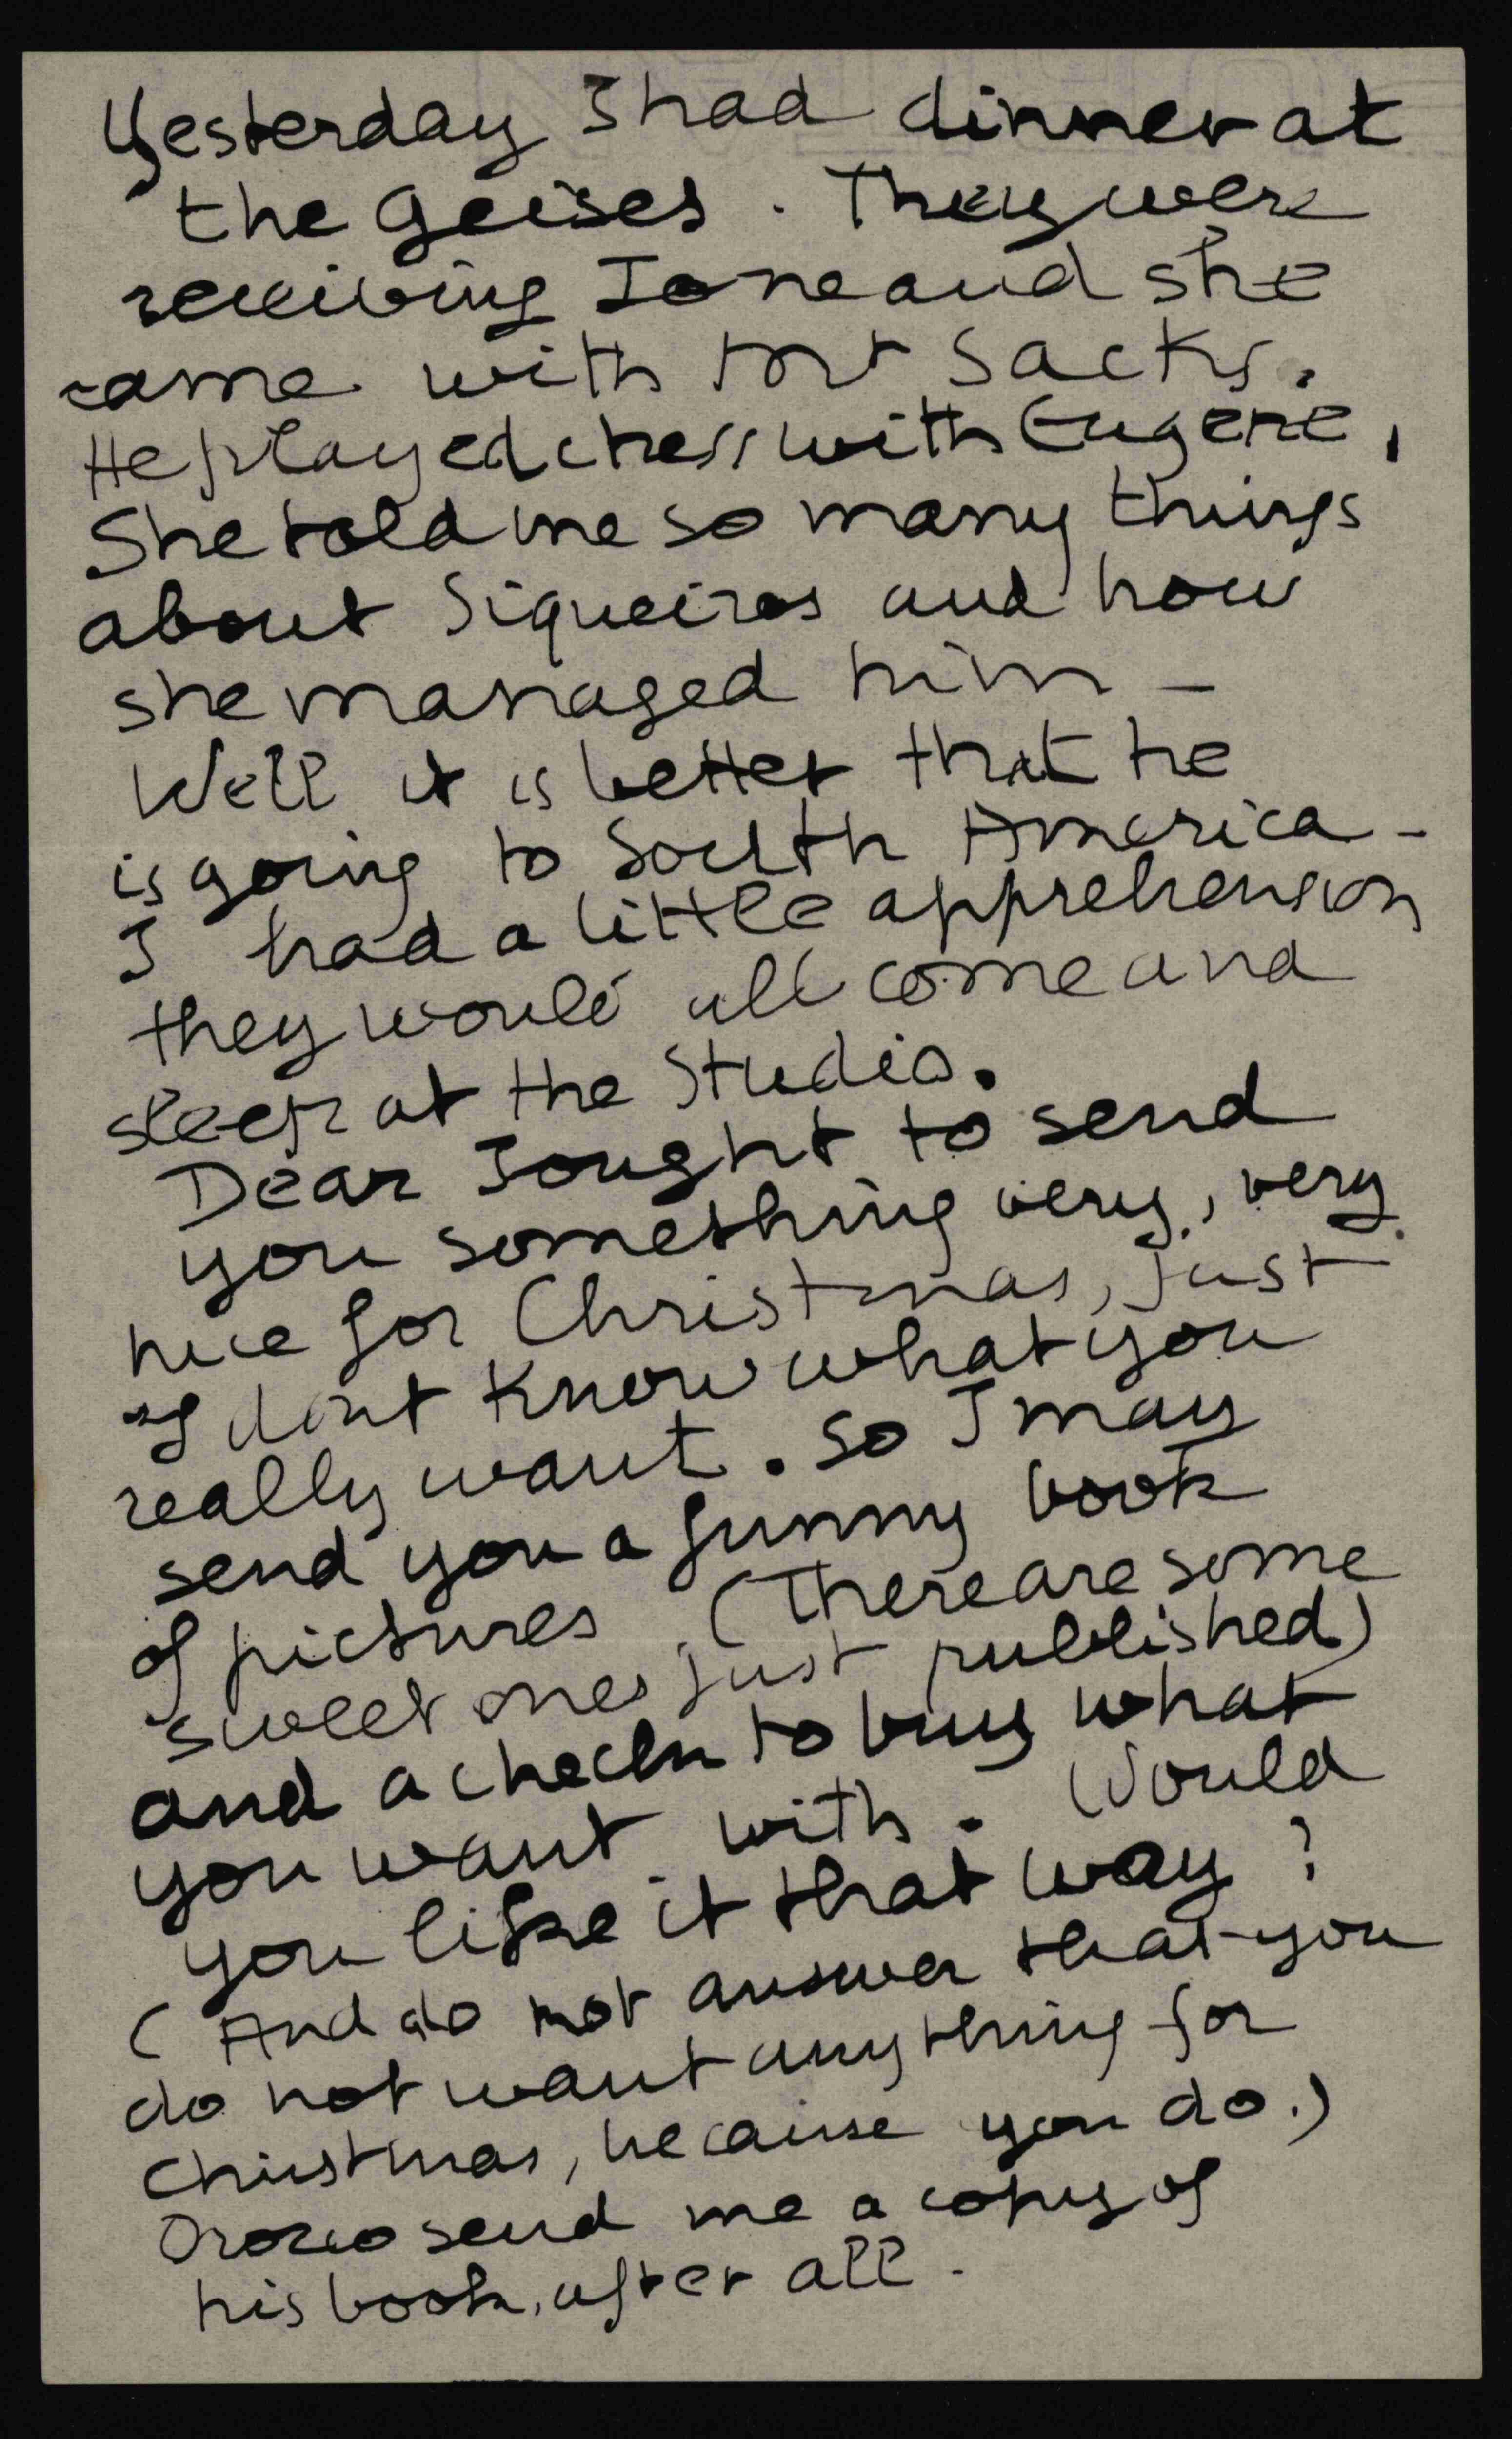 Yesterday I had dinner at
the Geises. They were
receiving Ione and she
came with Sacks.
He played chess with Eugene,
She told me so many things
about Siqueiros and how
she managed him –
Well it is better that he
is going to South America –
I had a little apprehension
they would all come and
sleep at the Studio.
Dear I ought to send
you something very, very
nice for Christmas, just
dont know what you
really want. So I may
send you a funny book
of pictures. (There are some
sweet ones just published)
and a check to buy what
you want with. Would
you like it that way?
(And do not answer that you
do not want anything for
Christmas, because you do.)
Orozco send me a copy of
his book, after all.